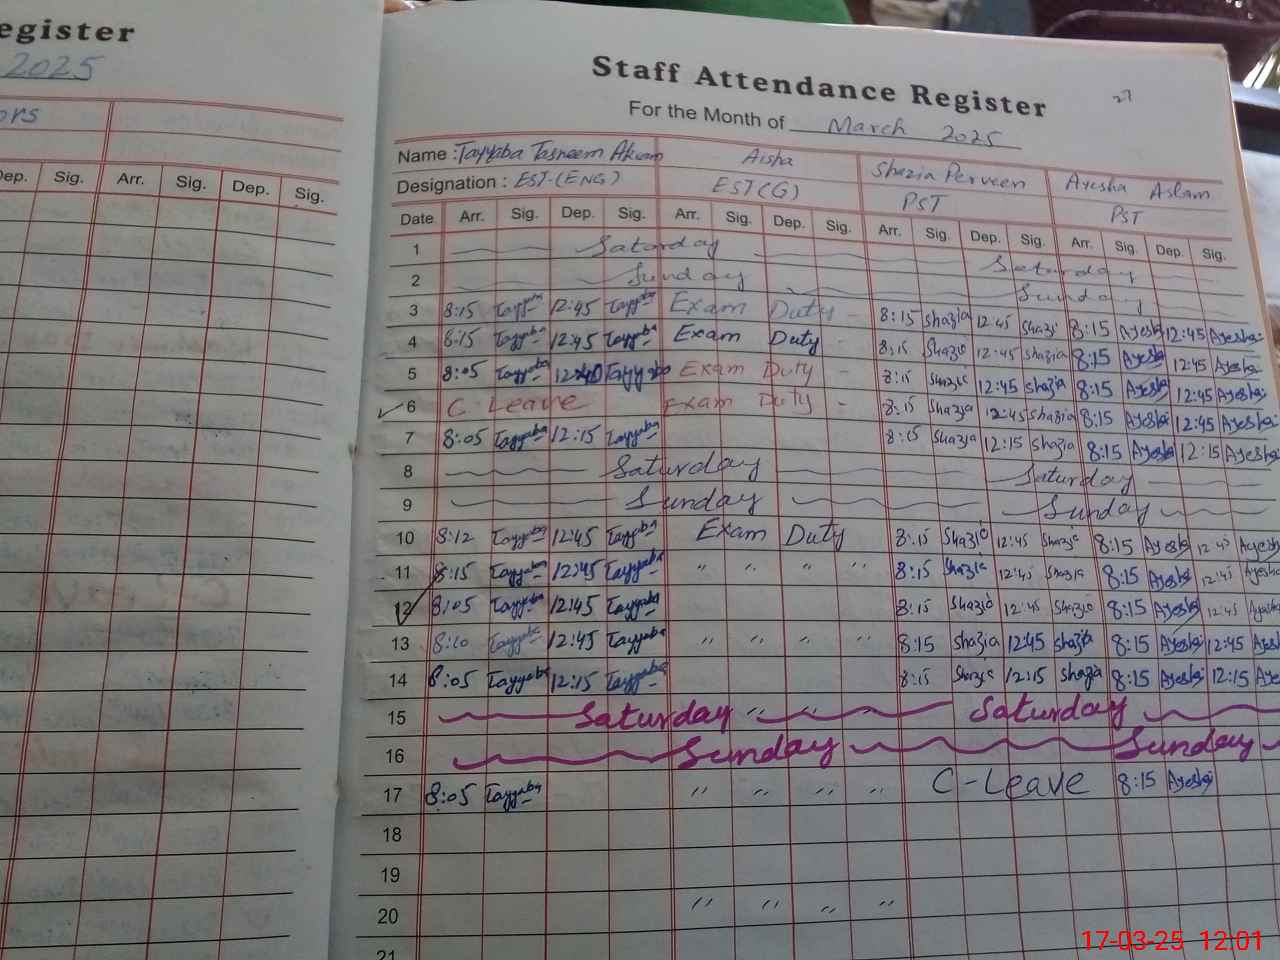 egister
2025
ors
Dep. Sig. Arr. Sig. Dep. Sig.
Staff Attendance Register
27
For the Month of March 2025
Name : Tayyaba Tasneem Akram Aisha Shazia Perveen Ayesha Aslam
Designation : EST-(ENG) EST(G) PST PST
Date Arr. Sig. Dep. Sig. Arr. Sig. Dep. Sig. Arr. Sig. Dep. Sig. Arr. Sig. Dep. Sig.
1 Saturday Saturday
2 Sunday Sunday
3 8:15 Tayyaba 12:45 Tayyaba Exam Duty - 8:15 Shazia 12:45 Shazi 8:15 Ayesha 12:45 Ayesha
4 8:15 Tayyaba 12:45 Tayyaba Exam Duty - 8:15 Shazia 12:45 Shazia 8:15 Ayesha 12:45 Ayesha
5 8:05 Tayyaba 12:40 Tayyaba Exam Duty - 8:15 Shazia 12:45 Shazia 8:15 Ayesha 12:45 Ayesha
6 C Leave Exam Duty - 8:15 Shazia 12:45 Shazia 8:15 Ayesha 12:45 Ayesha
7 8:05 Tayyaba 12:15 Tayyaba 8:15 Shazia 12:15 Shazia 8:15 Ayesha 12:15 Ayesha
8 Saturday Saturday
9 Sunday Sunday
10 8:12 Tayyaba 12:45 Tayyaba Exam Duty 8:15 Shazia 12:45 Shazia 8:15 Ayesha 12:45 Ayesha
11 8:15 Tayyaba 12:45 Tayyaba " " " " 8:15 Shazia 12:45 Shazia 8:15 Ayesha 12:45 Ayesha
12 8:05 Tayyaba 12:45 Tayyaba 8:15 Shazia 12:45 Shazia 8:15 Ayesha 12:45 Ayesha
13 8:10 Tayyaba 12:45 Tayyaba " " " " 8:15 Shazia 12:45 Shazia 8:15 Ayesha 12:45 Ayesha
14 8:05 Tayyaba 12:15 Tayyaba 8:15 Shazia 12:15 Shazia 8:15 Ayesha 12:15 Ayesha
15 Saturday " " " Saturday
16 Sunday Sunday
17 8:05 Tayyaba " " " " C-Leave 8:15 Ayesha
18
19
20 " " " "
21
17-03-25 12:01